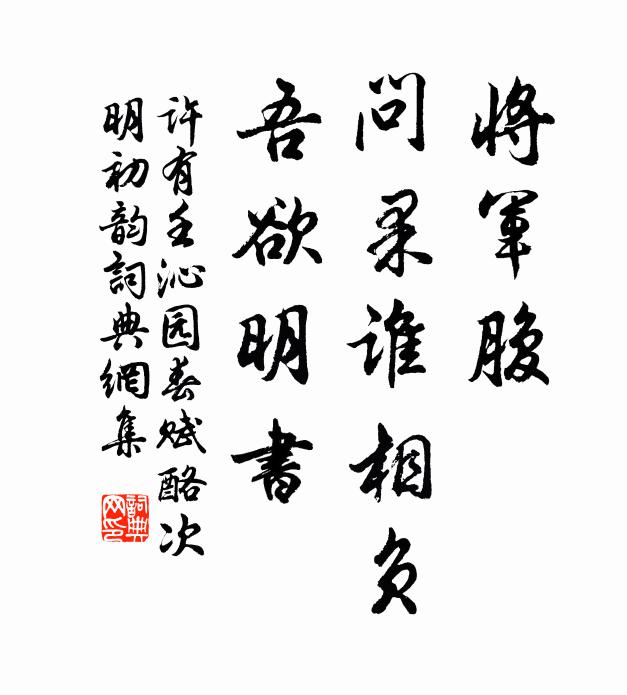 將軍腹
問果誰相負
吾欲明書
許有壬沁园春賦酪次
明初韵詞典網集
詞典
网印